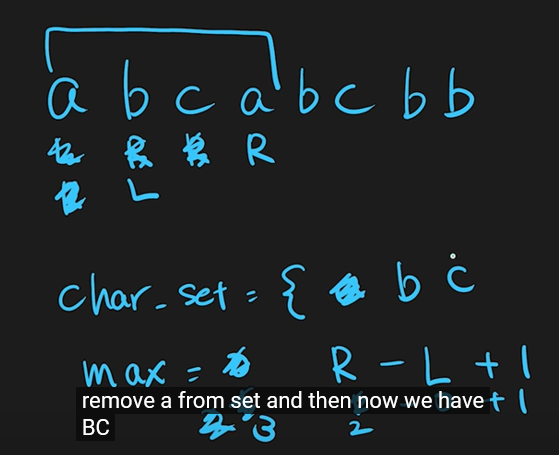 a b c a b c b b
R
L
char_set = { b c
max = R - L + 1
remove a from set and then now we have
BC
3 2 + 1